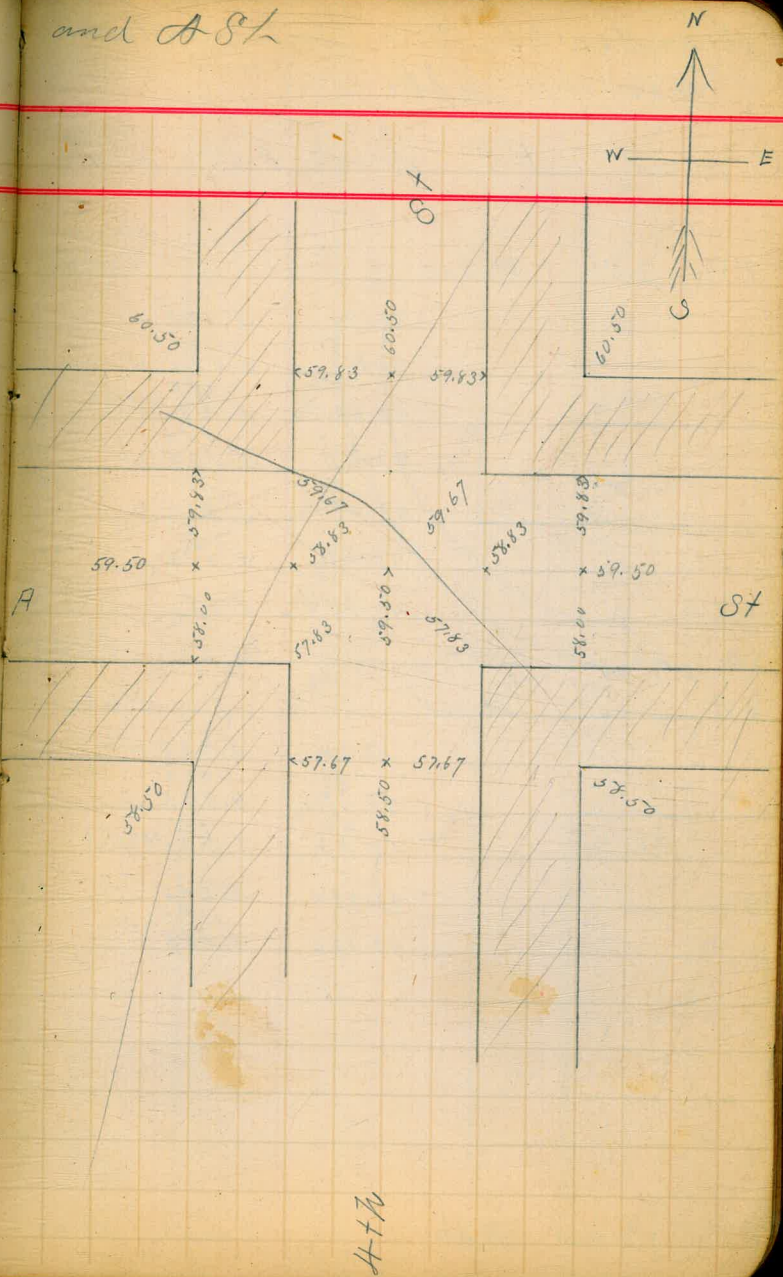 and A St
N
W E
S
St
60.50
60.50
60.50
59.83 59.83
59.83
59.67
59.67
59.83
58.83
58.83
59.50
59.50
A
St
58.00
57.83
59.50
57.83
58.00
57.67 57.67
58.50
58.50
58.50
4th